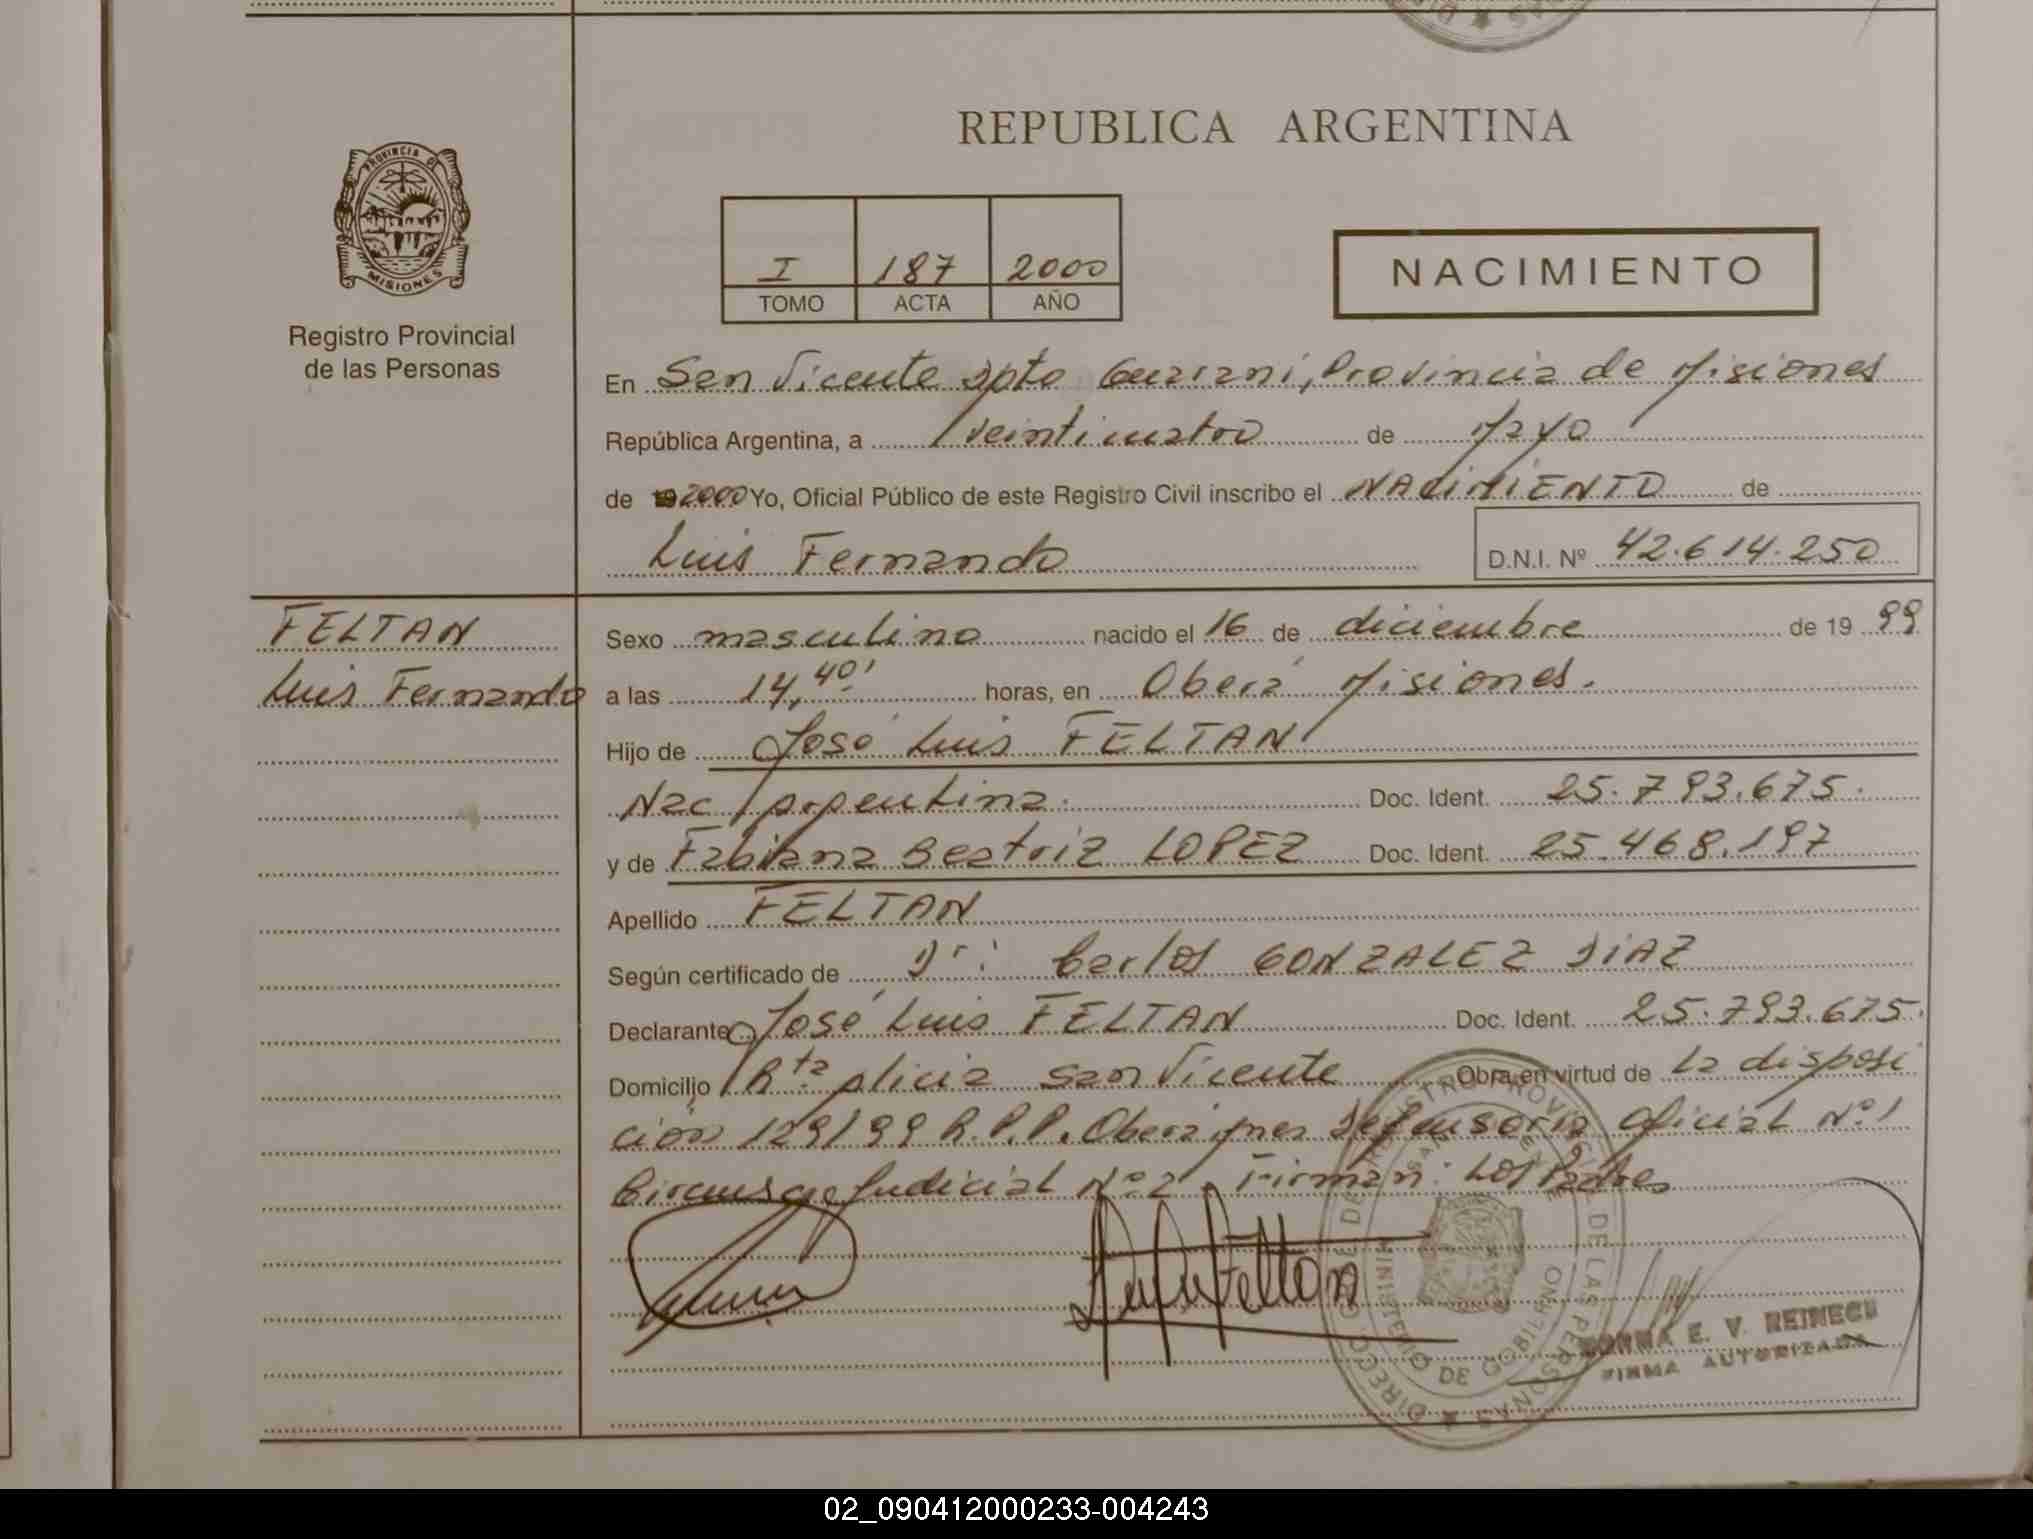 REPUBLICA ARGENTINA
PROVINCIA DE
MISIONES
Registro Provincial
de las Personas
I 187 2000
TOMO ACTA AÑO
NACIMIENTO
En San Vicente Dpto Guaraní, Provincia de Misiones
República Argentina, a veinticuatro de Mayo
de 19 2000 Yo, Oficial Público de este Registro Civil inscribo el NACIMIENTO de
Luis Fernando
D.N.I. Nº 42.614.250
FELTAN
Luis Fernando
Sexo masculino nacido el 16 de diciembre de 19 99
a las 14,40' horas, en Oberá Misiones.
Hijo de José Luis FELTAN
Nac Argentina. Doc. Ident. 25.793.675.
y de Fabiana Beatriz LOPEZ Doc. Ident. 25.468.197
Apellido FELTAN
Según certificado de Dr: Carlos GONZALEZ DIAZ
Declarante José Luis FELTAN Doc. Ident. 25.793.675.
Domicilio Rta Alicia San Vicente Obra en virtud de la disposi
ción 129/99 R.P.P. Oberá Defensoria Oficial Nº 1
Judicial Nº 2 Firman: Los Padres
Feltan
DIRECCION DE REGISTRO PROVINCIAL DE LAS PERSONAS
MINISTERIO DE GOBIERNO
SAN VICENTE
NORMA E. V. REINECK
FIRMA AUTORIZADA
02_090412000233-004243